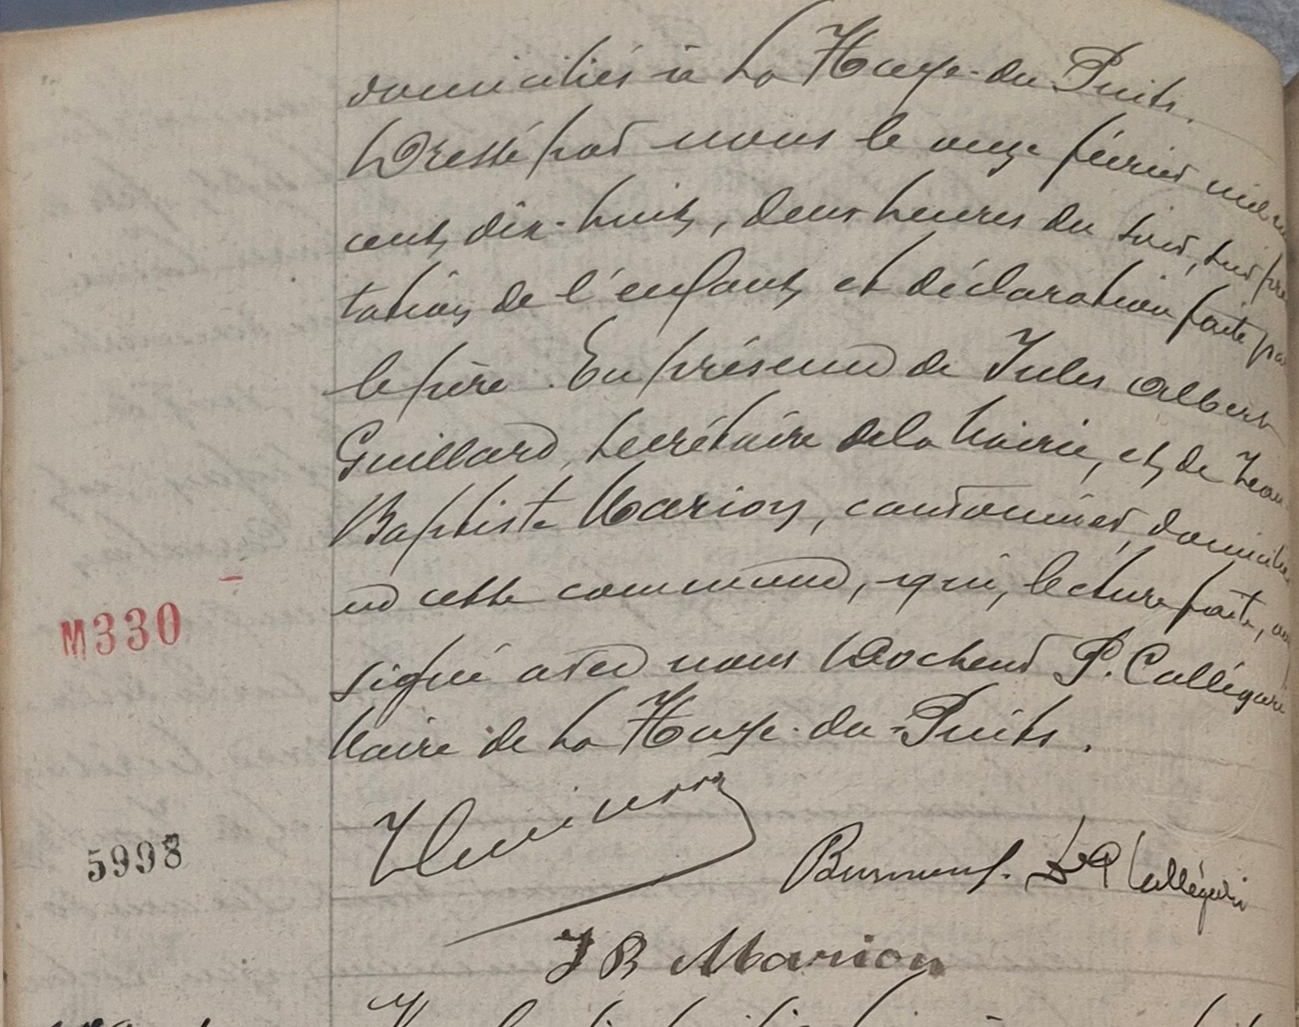 domiciliés à La Haye-du-Puits.
Dressé par nous le onze février mil n
cent dix-huit, deux heures du soir, sur pré
tation de l'enfant et déclaration faite pa
le père. En présence de Jules Albert
Guillard, secrétaire de la Mairie, et de Jean
Baptiste Marion, cantonnier, domiciliés
en cette commune, qui, lecture faite, ont
signé avec nous Docteur P. Callégari
Maire de La Haye-du-Puits.
M330
5993
Burnouf. Dr P Callégari
J B Marion